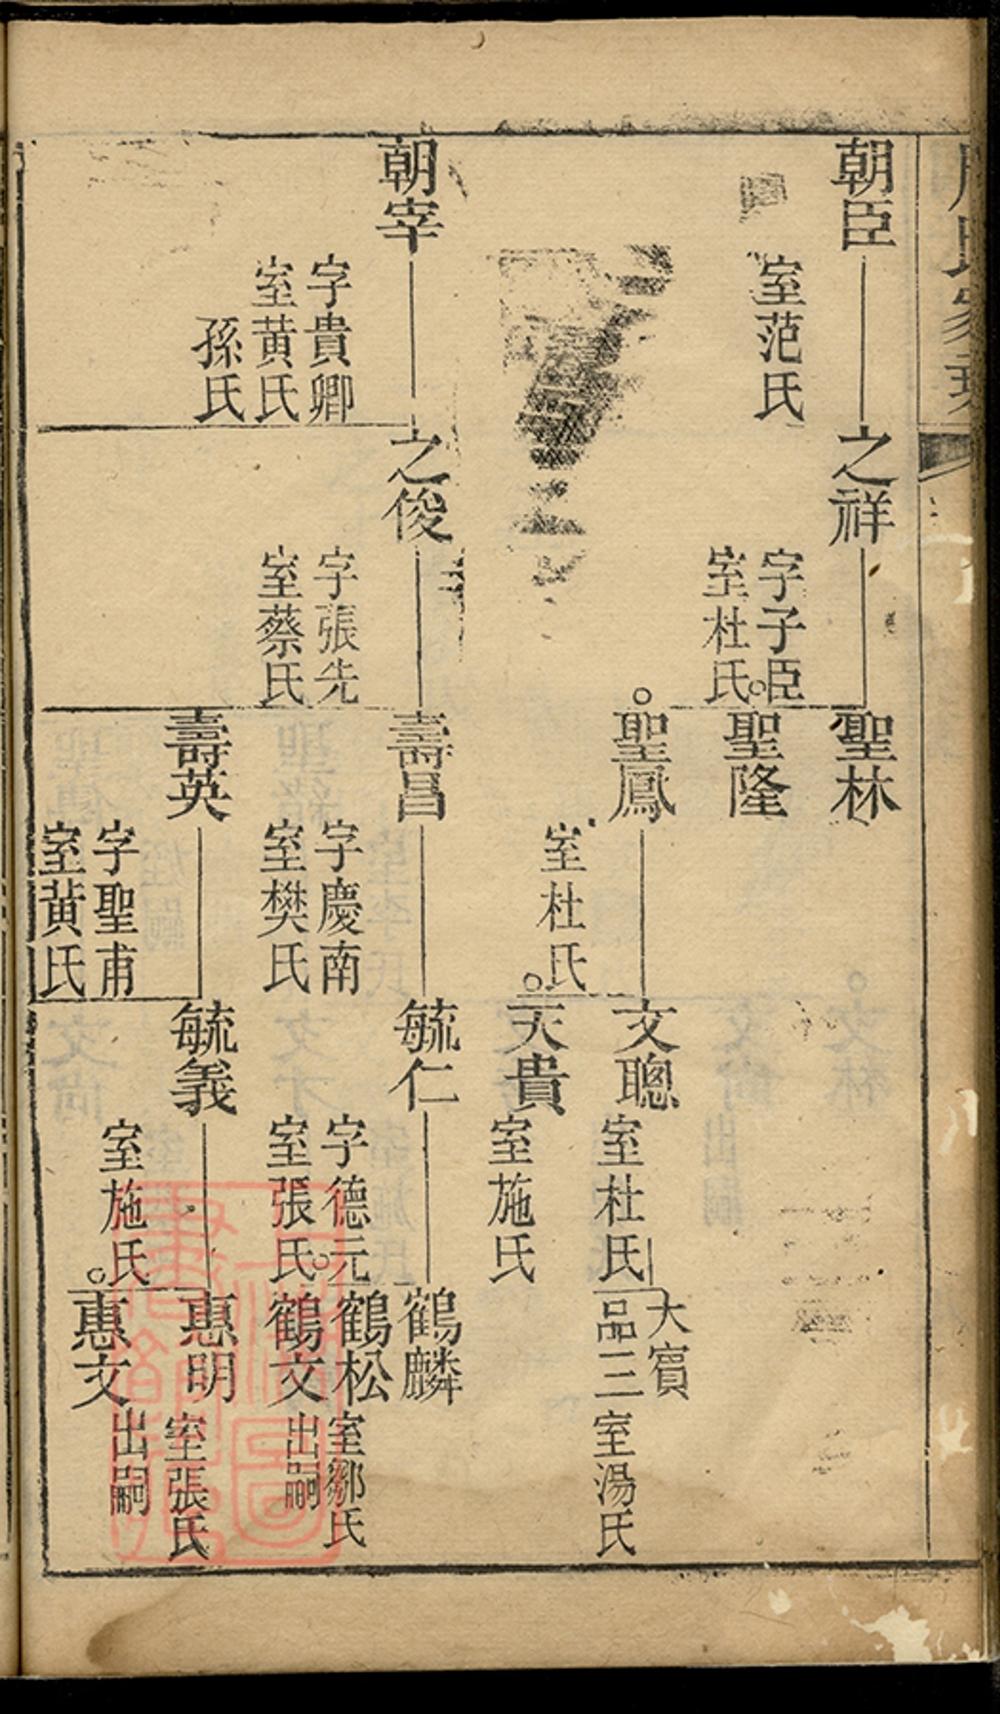 朝臣
室范氏
之祥
字子臣
室杜氏
聖林
聖隆
聖鳳
室杜氏
文聰
室杜氏
大寶
品三
室湯氏
天貴
室施氏
朝宰
字貴卿
室黃氏
孫氏
之俊
字張先
室蔡氏
壽昌
字慶南
室樊氏
毓仁
字德元
室張氏
鶴麟
鶴松
室鄒氏
鶴文
出嗣
壽英
字聖甫
室黃氏
毓義
室施氏
惠明
室張氏
惠文
出嗣